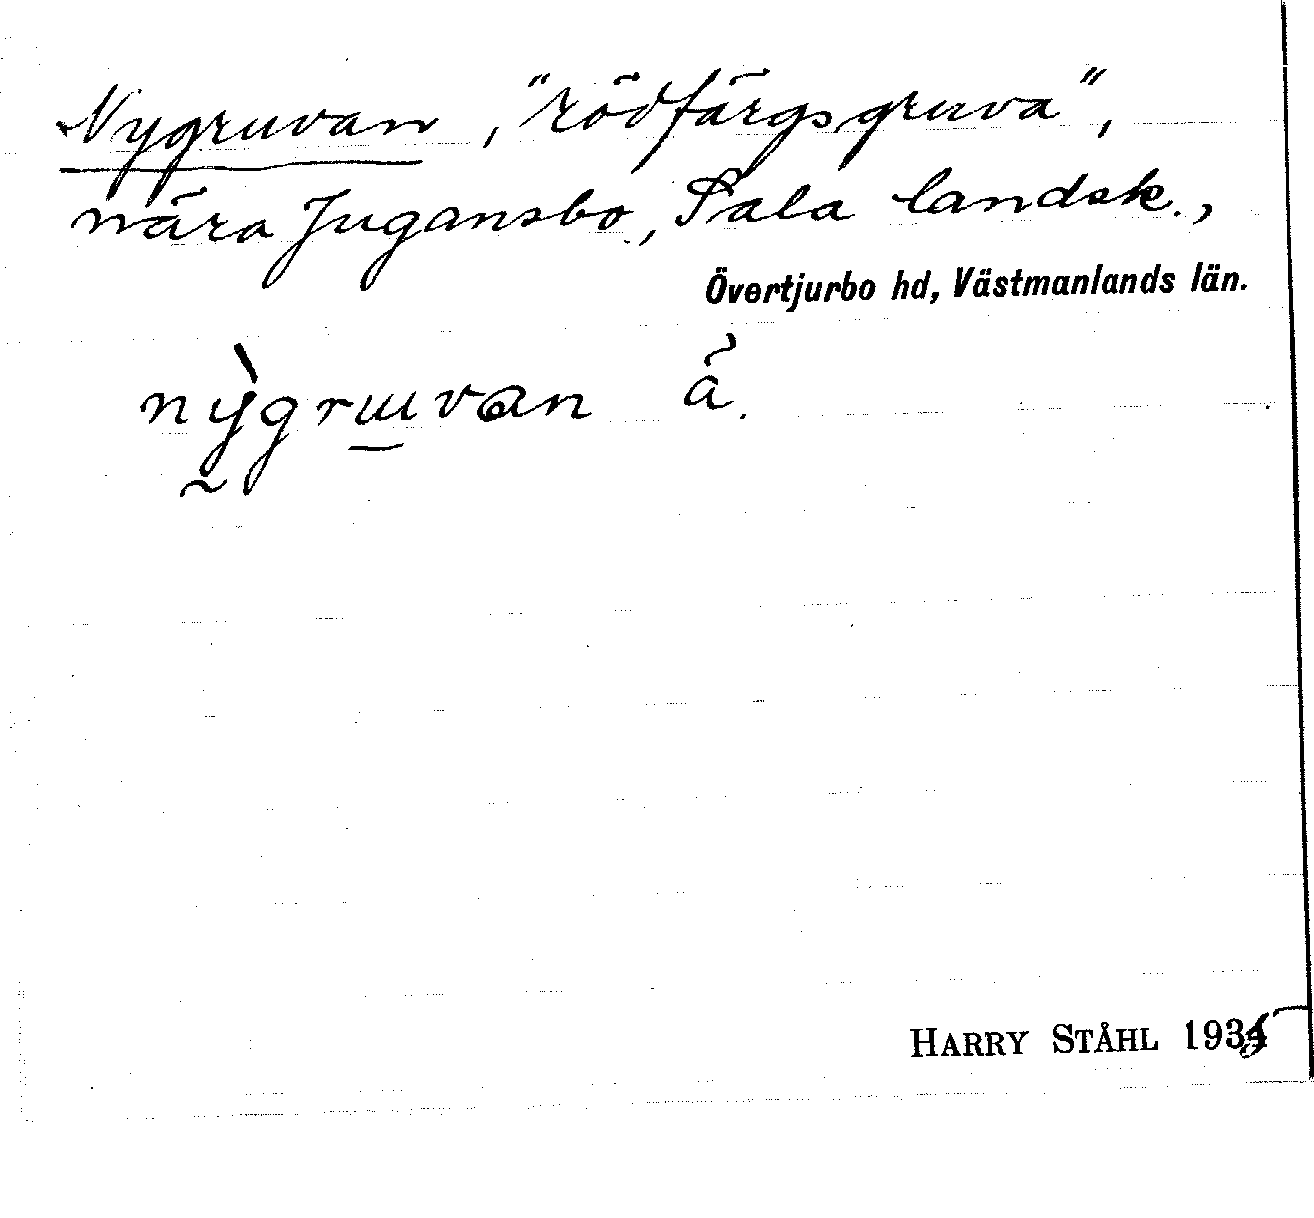 Nygruvan, "rödfärgsgruva",
nära Jugansbo, Sala landsk.,
Övertjurbo hd, Västmanlands län.
nỳgrɯvan å̃.
HARRY STÅHL 1935